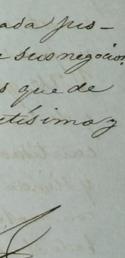 ada jus-
e sus negocion
s que de
tísimo y